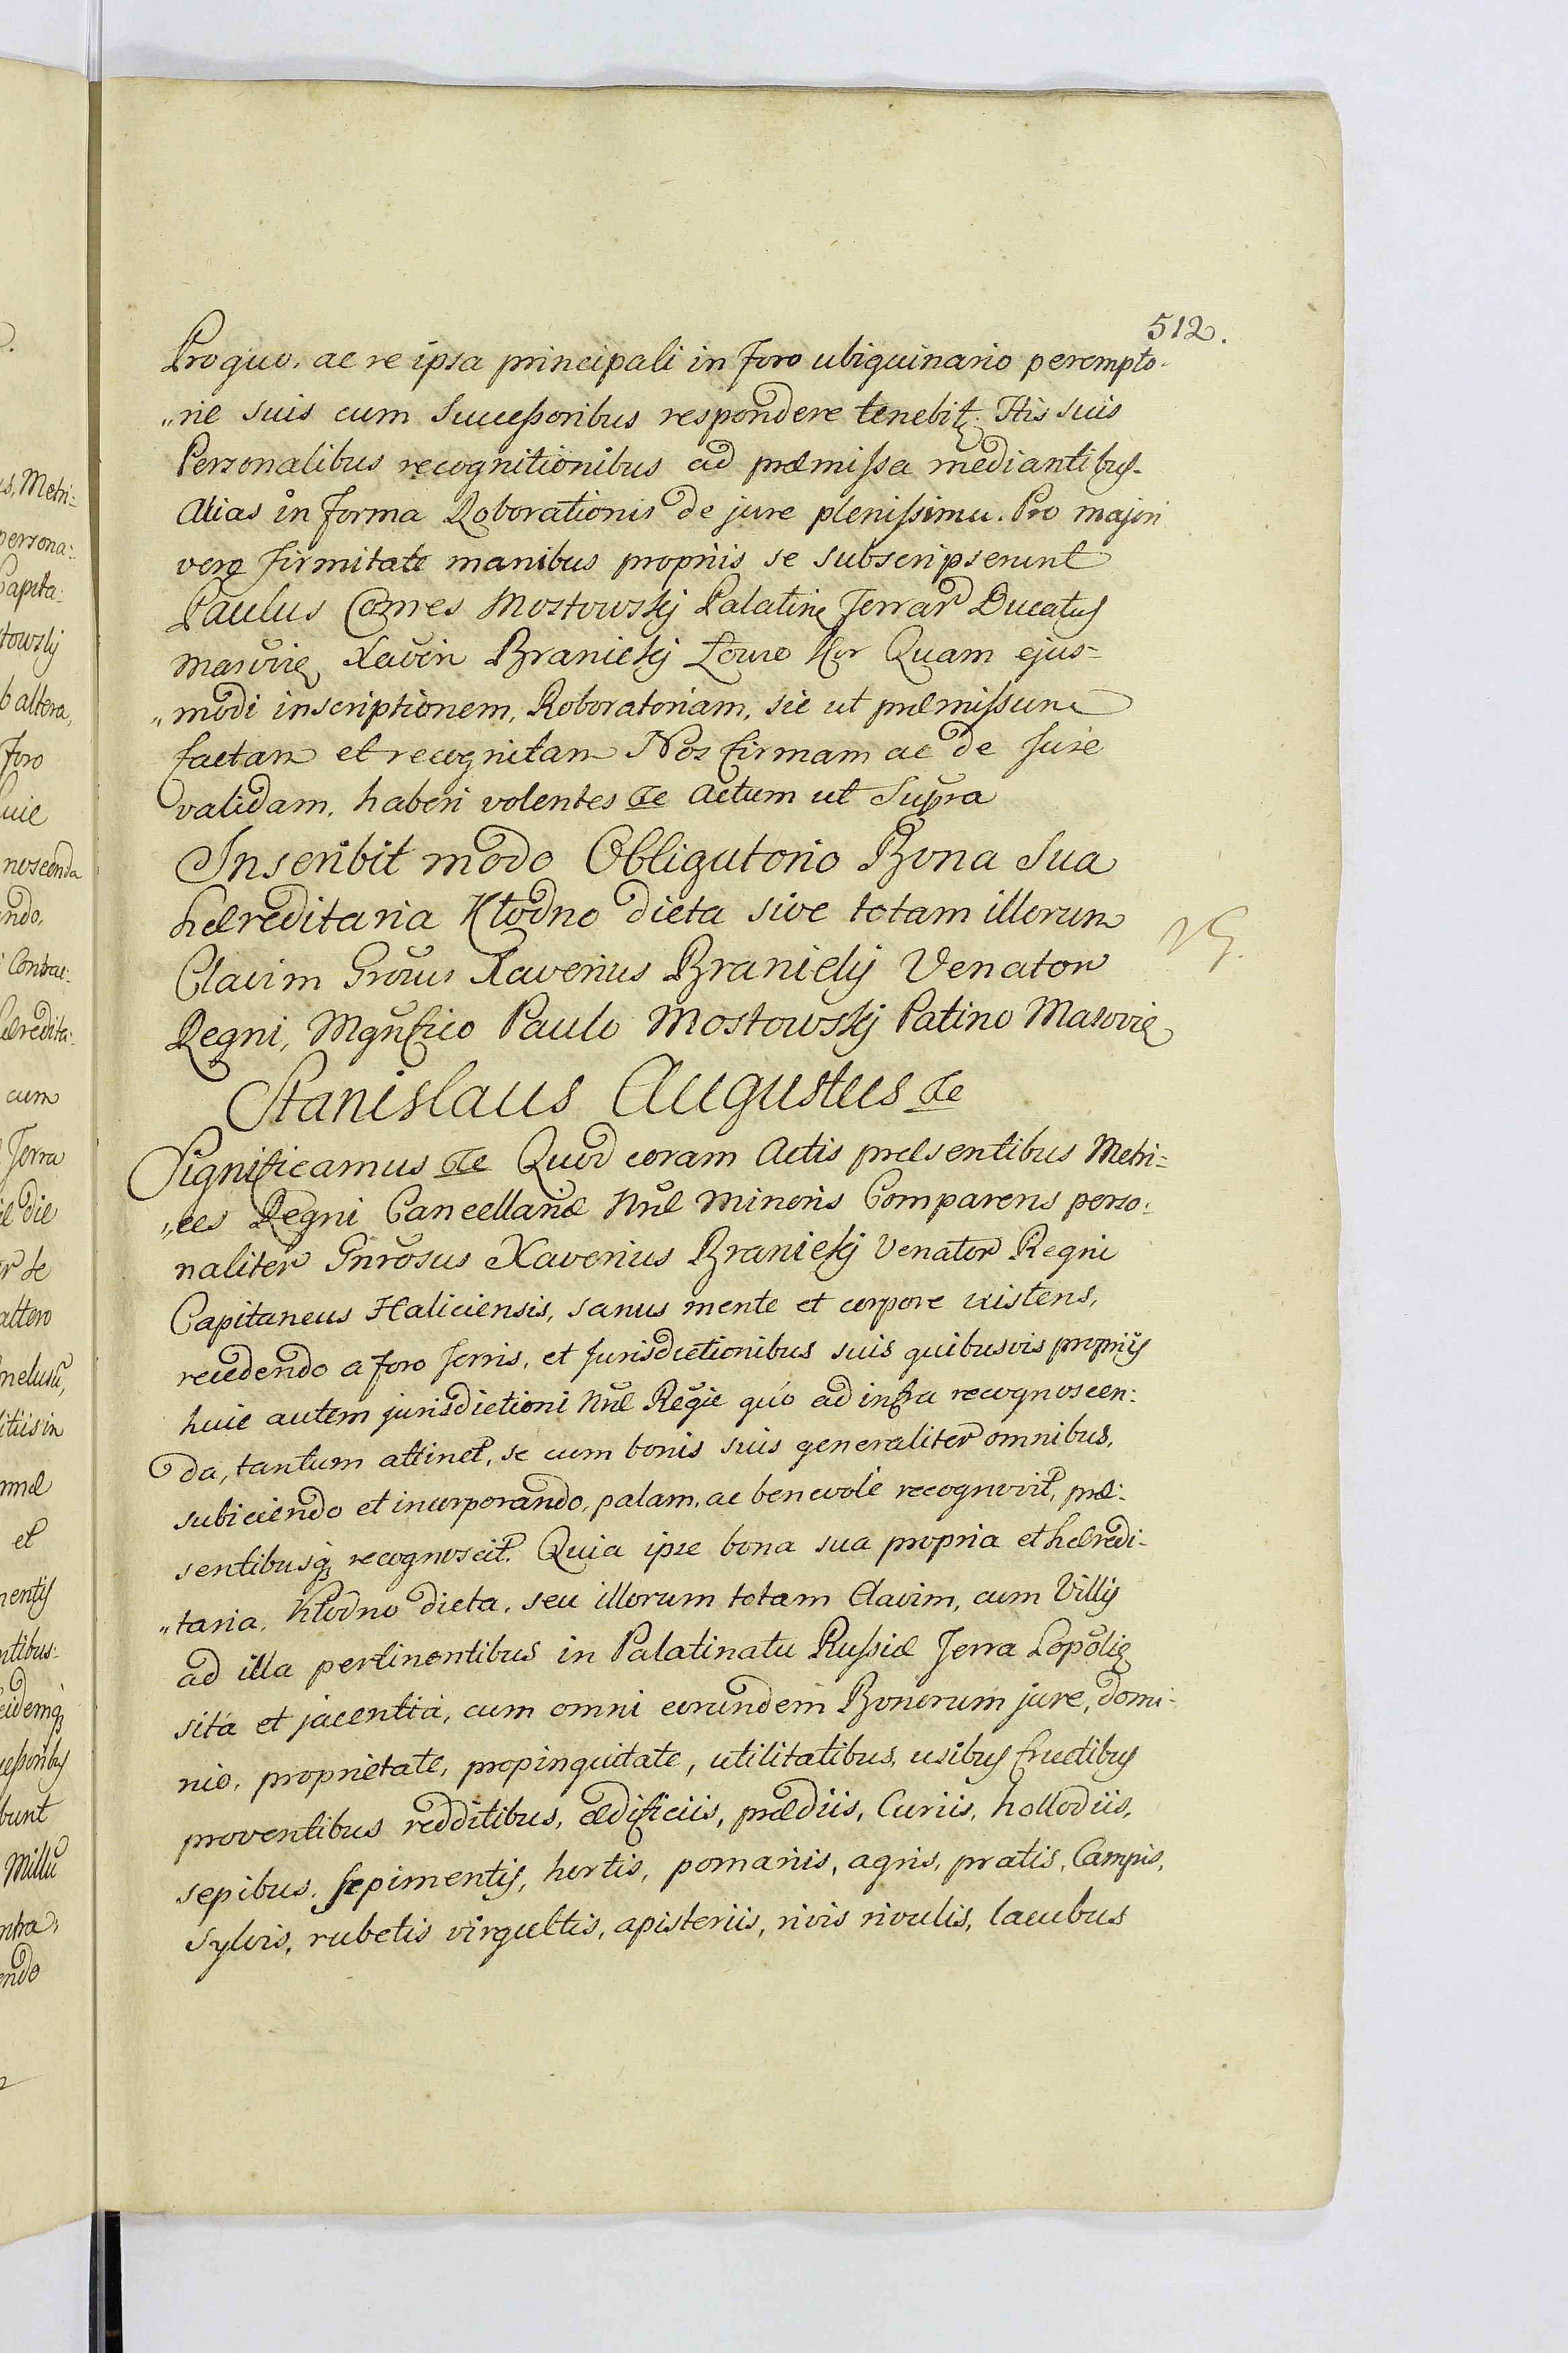 512.
Pro quo, ac re ipsa principali in Foro ubiquinario perempto-
„rie suis cum Succeßoribus respondere tenebit. His suis
Personalibus recognitionibus ad præmißa mediantibus.
Alias in Forma Roborationis de jure plenißimu. Pro majori
vero firmitate manibus propriis se subscripserunt
Paulus Comes Mostowskj Palatinę Terrar Ducatus
Masovię Xavier Branickj Łowc Kor Quam ejus-
„modi inscriptionem, Roboratoriam, sic ut præmißum
factam et recognitam Nos firmam ac de Jure
validam, haberi volentes &c Actum ut Supra
Inscribit modo Obligatorio Bona Sua
hæreditaria Kłodno dicta sive totam illorum
Clavim Grosus Xaverius Branickj Venator
Regni, Mgnfico Paulo Mostowskj Patino Masovię
Stanislaus Augustus &c
Significamus &c Quod coram Actis præsentibus Metri-
„ces Regni Cancellariæ Nræ Minoris Comparens perso:
naliter Gnrosus Xaverius Branickj Venator Regni
Capitaneus Haliciensis, sanus mente et corpore existens,
recedendo a Foro Terris, et Jurisdictionibus suis quibusvis proprijs
huic autem jurisdictioni Nræ Regiæ quo ad infra recognoscen:
da, tantum attinet, se cum bonis suis generaliter omnibus,
subiiciendo et incorporando, palam, ac benevole recognovit, præ:
sentibusq; recognoscit. Quia ipse bona sua propria et hæredi-
„taria, Kłodno dicta, seu illorum totam Clavim, cum Villis
ad illa pertinentibus in Palatinatu Rußiæ Terra Leopolię
sita et jacentia, cum omni eorundem Bonorum jure, domi-
nio, proprietate, propinquitate, utilitatibus, usibus fructibus
proventibus redditibus, ædificiis, prædiis, Curiis, hollodiis,
sepibus, sepimentis, hortis, pomariis, agris, pratis, Campis,
sylvis, rubetis virgultis, apisteriis, rivis rivulis, lacubus